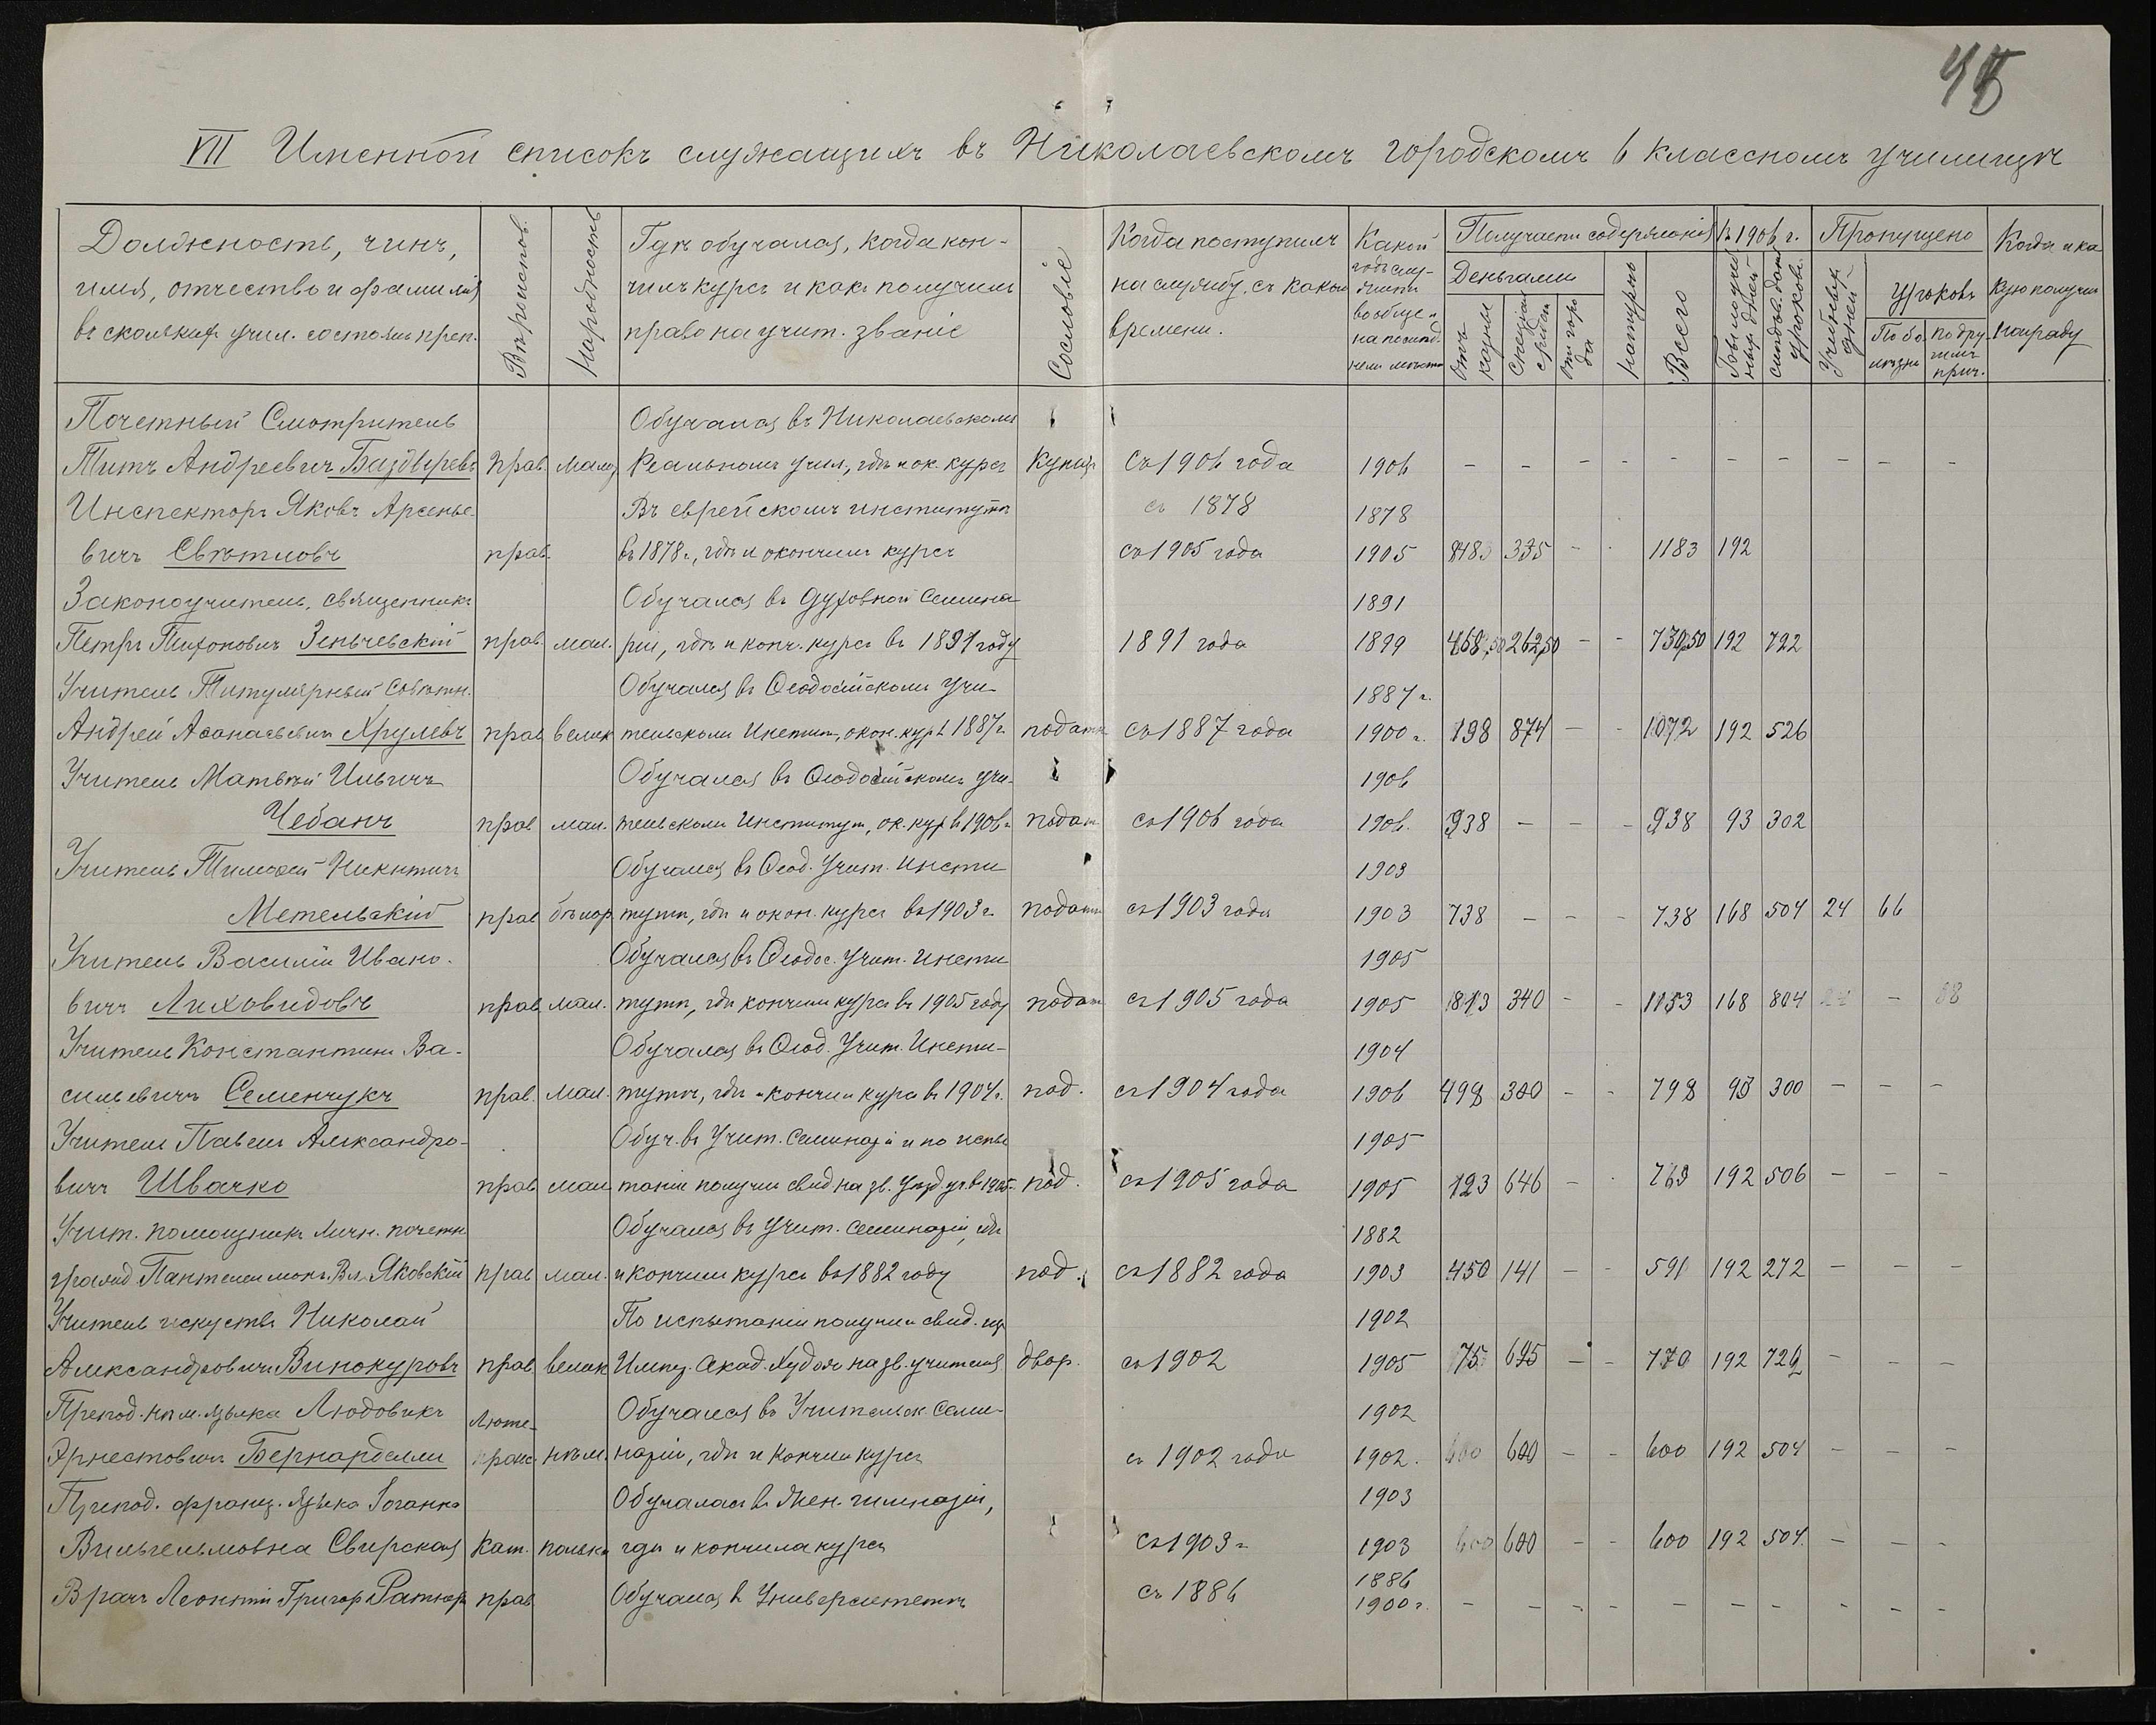 45
VII Именной списокъ служащихъ въ Николаевскомъ городскомъ 6 классномъ училищѣ
Должность, чинъ, имя, отчество и фамилія
Вѣроисповѣд.
Народность
Гдѣ обучался, когда кончилъ курсъ и какъ получилъ право на учит. званіе
Сословіе
Когда поступилъ на службу, съ какого времени.
Какой годъ службы вообще и на послѣд. мѣстѣ
Получаетъ содержанія
Деньгами
Отъ казны
Спеціал. средств
Отъ города
Натурою
Всего
Въ 1906 г.
Пропущено
Учебныхъ дней
Уроковъ
По болѣзни
По другимъ прич.
Когда и какую получилъ награду
Почетный Смотритель Обучался въ Николаевскомъ
Титъ Андреевичъ Баздыревъ прав. мало. Реальномъ учил., гдѣ и ок. курсъ Купец. Съ 1906 года 1906 – – – – – – – – – –
Инспекторъ Яковъ Арсенье- Въ еврейскомъ институтѣ съ 1878 1878
вичъ Свѣтловъ прав. въ 1878 г., гдѣ и окончилъ курсъ съ 1905 года 1905 848 335 – - 1183 192
Законоучитель, священникъ Обучался въ духовной Семина- 1891
Петръ Тихоновичъ Зеньчевскій прав. мал. ріи, гдѣ и конч. курсъ въ 1891 году 1891 года 1899 468,50 262,50 – - 730,50 192 722
Учитель Титулярный Совѣтн. Обучался въ Ѳеодосійскомъ Учи- 1887 г.
Андрей Аѳанасьевичъ Хрулевъ прав. велик. тельскомъ Инстит., окон. кур. въ 1887 г. податн. съ 1887 года 1900 г. 198 874 – - 1072 192 526
Учитель Матвѣй Ильичъ Обучался въ Ѳеодосійскомъ учи- 1906
Чебанъ прав. мал. тельскомъ Институтѣ, ок. кур. въ 1906 г. податн. съ 1906 года 1906. 938 – – - 938 93 302
Учитель Тимоѳей Никитичъ Обучался въ Ѳеод. Учит. Инсти- 1903
Метельскій прав. бѣлор. тутѣ, гдѣ и окон. курсъ въ 1903 г. податн. съ 1903 года 1903 738 – – - 738 168 504 24 66
Учитель Василій Ивано- Обучался въ Ѳеодос. Учит. Инсти- 1905
вичъ Лиховидовъ прав. мал. тутѣ, гдѣ кончилъ курсъ въ 1905 году податн. съ 1905 года 1905 813 340 – - 1153 168 804 – 88
Учитель Константинъ Ва- Обучался въ Ѳеод. Учит. Инсти- 1904
сильевичъ Семенчукъ прав. мал. тутѣ, гдѣ и кончилъ курсъ въ 1904 г. под. съ 1904 года 1906 498 300 – - 798 93 300 – – –
Учитель Павелъ Александро- Обуч. въ Учит. Семинаріи и по испы- 1905
вичъ Швачко прав. мал. танію получилъ свид. на зв. Уѣзд. уч. въ 1905 под. съ 1905 года 1905 123 646 – - 769 192 506 – – –
Учит. помощникъ личн. почетн. Обучался въ Учит. семинаріи, гдѣ 1882
гражд. Пантелеимонъ Вл. Яковскій прав. мал. и кончилъ курсъ въ 1882 году под. съ 1882 года 1903 450 141 – - 591 192 272 – – –
Учитель искуствъ Николай По испытаніи получилъ свид. изъ 1902
Александровичъ Винокуровъ прав. велик. Имп. Акад. Худож. на зв. учителя двор. съ 1902 1905 75 695 – - 770 192 722 – – –
Препод. нѣм. языка Людовикъ Люте- Обучался въ Учительск. Семи- 1902
Эрнестовичъ Бернарделли ранс. нѣм. наріи, гдѣ и кончилъ курсъ съ 1902 года 1902. 600 – – 600 192 504 – – –
Препод. франц. языка Іоганна Обучалась въ жен. гимназіи, 1903
Вильгельмовна Свирская Кат. полька гдѣ и кончила курсъ съ 1903 г. 1903 600 – – 600 192 504 – – -
1886
Врачъ Леонтій Григор. Ратнеръ прав. Обучался въ Университетѣ съ 1886 1900 г. – – – – – – – – – –